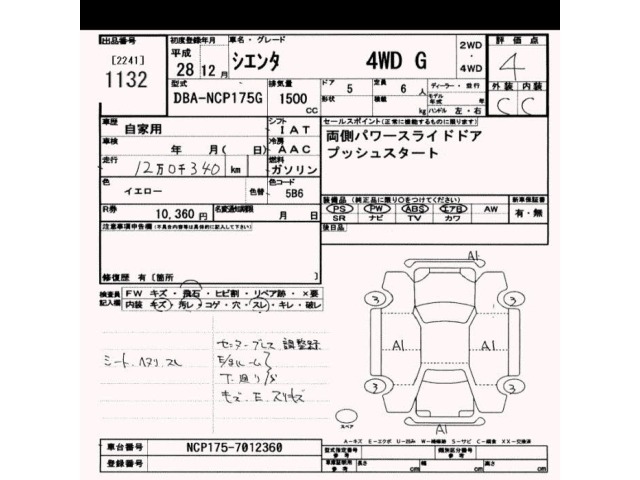 出品番号
[2241]
1132
初度登録年月
平成
28年12月
車名・グレード
シエンタ 4WD G
2WD
・
4WD
評価点
4
外装 内装
C C
型式
DBA-NCP175G
排気量
1500
CC
ドア
5
形状
定員
6人
積載
kg
ディーラー・並行
モデル年式 年
ハンドル 左・右
車歴
自家用
シフト
IAT
車検
年 月( 日)
冷房
AAC
走行
12万0千340 km
燃料
ガソリン
色
イエロー
色替
色コード
5B6
R券
10,360円
名変通知期限
月 日
セールスポイント(正常に機能するものに限ります)
両側パワースライドドア
プッシュスタート
装備品(純正品に限り○をつけてください)
PS PW ABS エアB AW
SR ナビ TV カワ
新車保証書
有・無
後日品
注意事項申告欄
修復歴 有〔箇所
検査員
記入欄
FW キズ・飛石・ヒビ割・リペア跡・×要
内装 キズ・汚レ・コゲ・穴・スレ・キレ・破レ
シート
調整録
下廻り
A1
3 3
A1 A1
3 3
A1
スペア
A-キズ E-エクボ U-凹み W-補修跡 S-サビ C-腐食 XX-交換済
車台番号
NCP175-7012360
登録番号
型式指定番号
参考
類別区分番号
参考
車庫証明用
参考
長さ cm
幅 cm
高さ cm